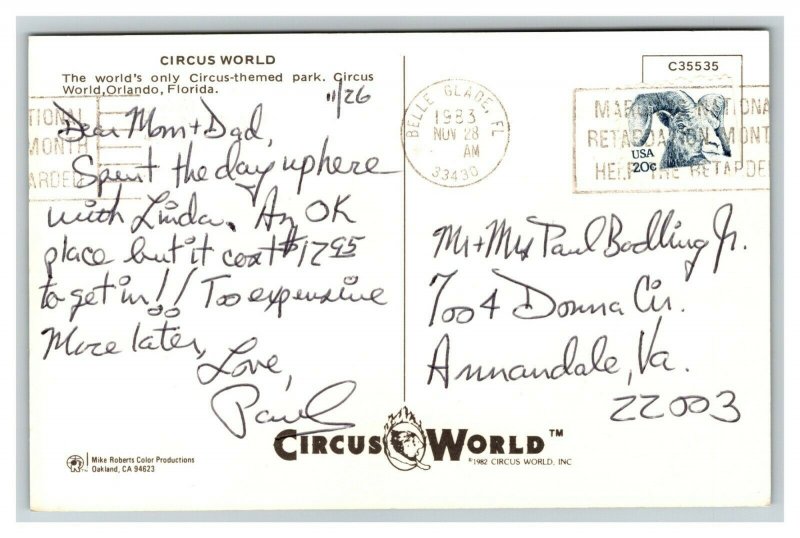 CIRCUS WORLD
The world's only Circus-themed park. Circus
World, Orlando, Florida.
11/26
Dear Mom + Dad,
Spent the day up here
with Linda. An OK
place but it cost $17.95
to get in!! Too expensive
More later,
Love,
Paul
Mike Roberts Color Productions
Oakland, CA 94623
CIRCUS WORLD™
©1982 CIRCUS WORLD, INC
C35535
BELLE GLADE, FL
1983
NOV 28
AM
33430
TIONAL
MONTH
ARDED
NATIONA
RETARDATION MONT
HELP THE RETARDED
USA
20c
Mr + Mrs Paul Bodling Jr.
7004 Donna Cir.
Annandale, Va.
22003